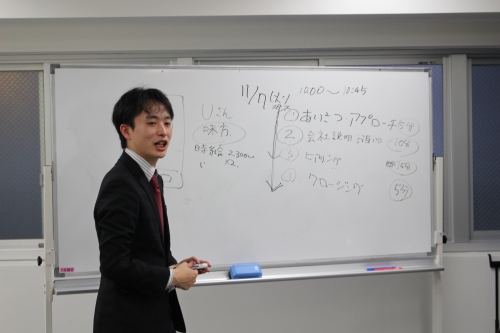 11/7
10:00〜10:45
Uさん
時給 2,300
×2
① あいさつ アプローチ 5分
② 会社説明 10分
③ ヒアリング
④ クロージング 5分